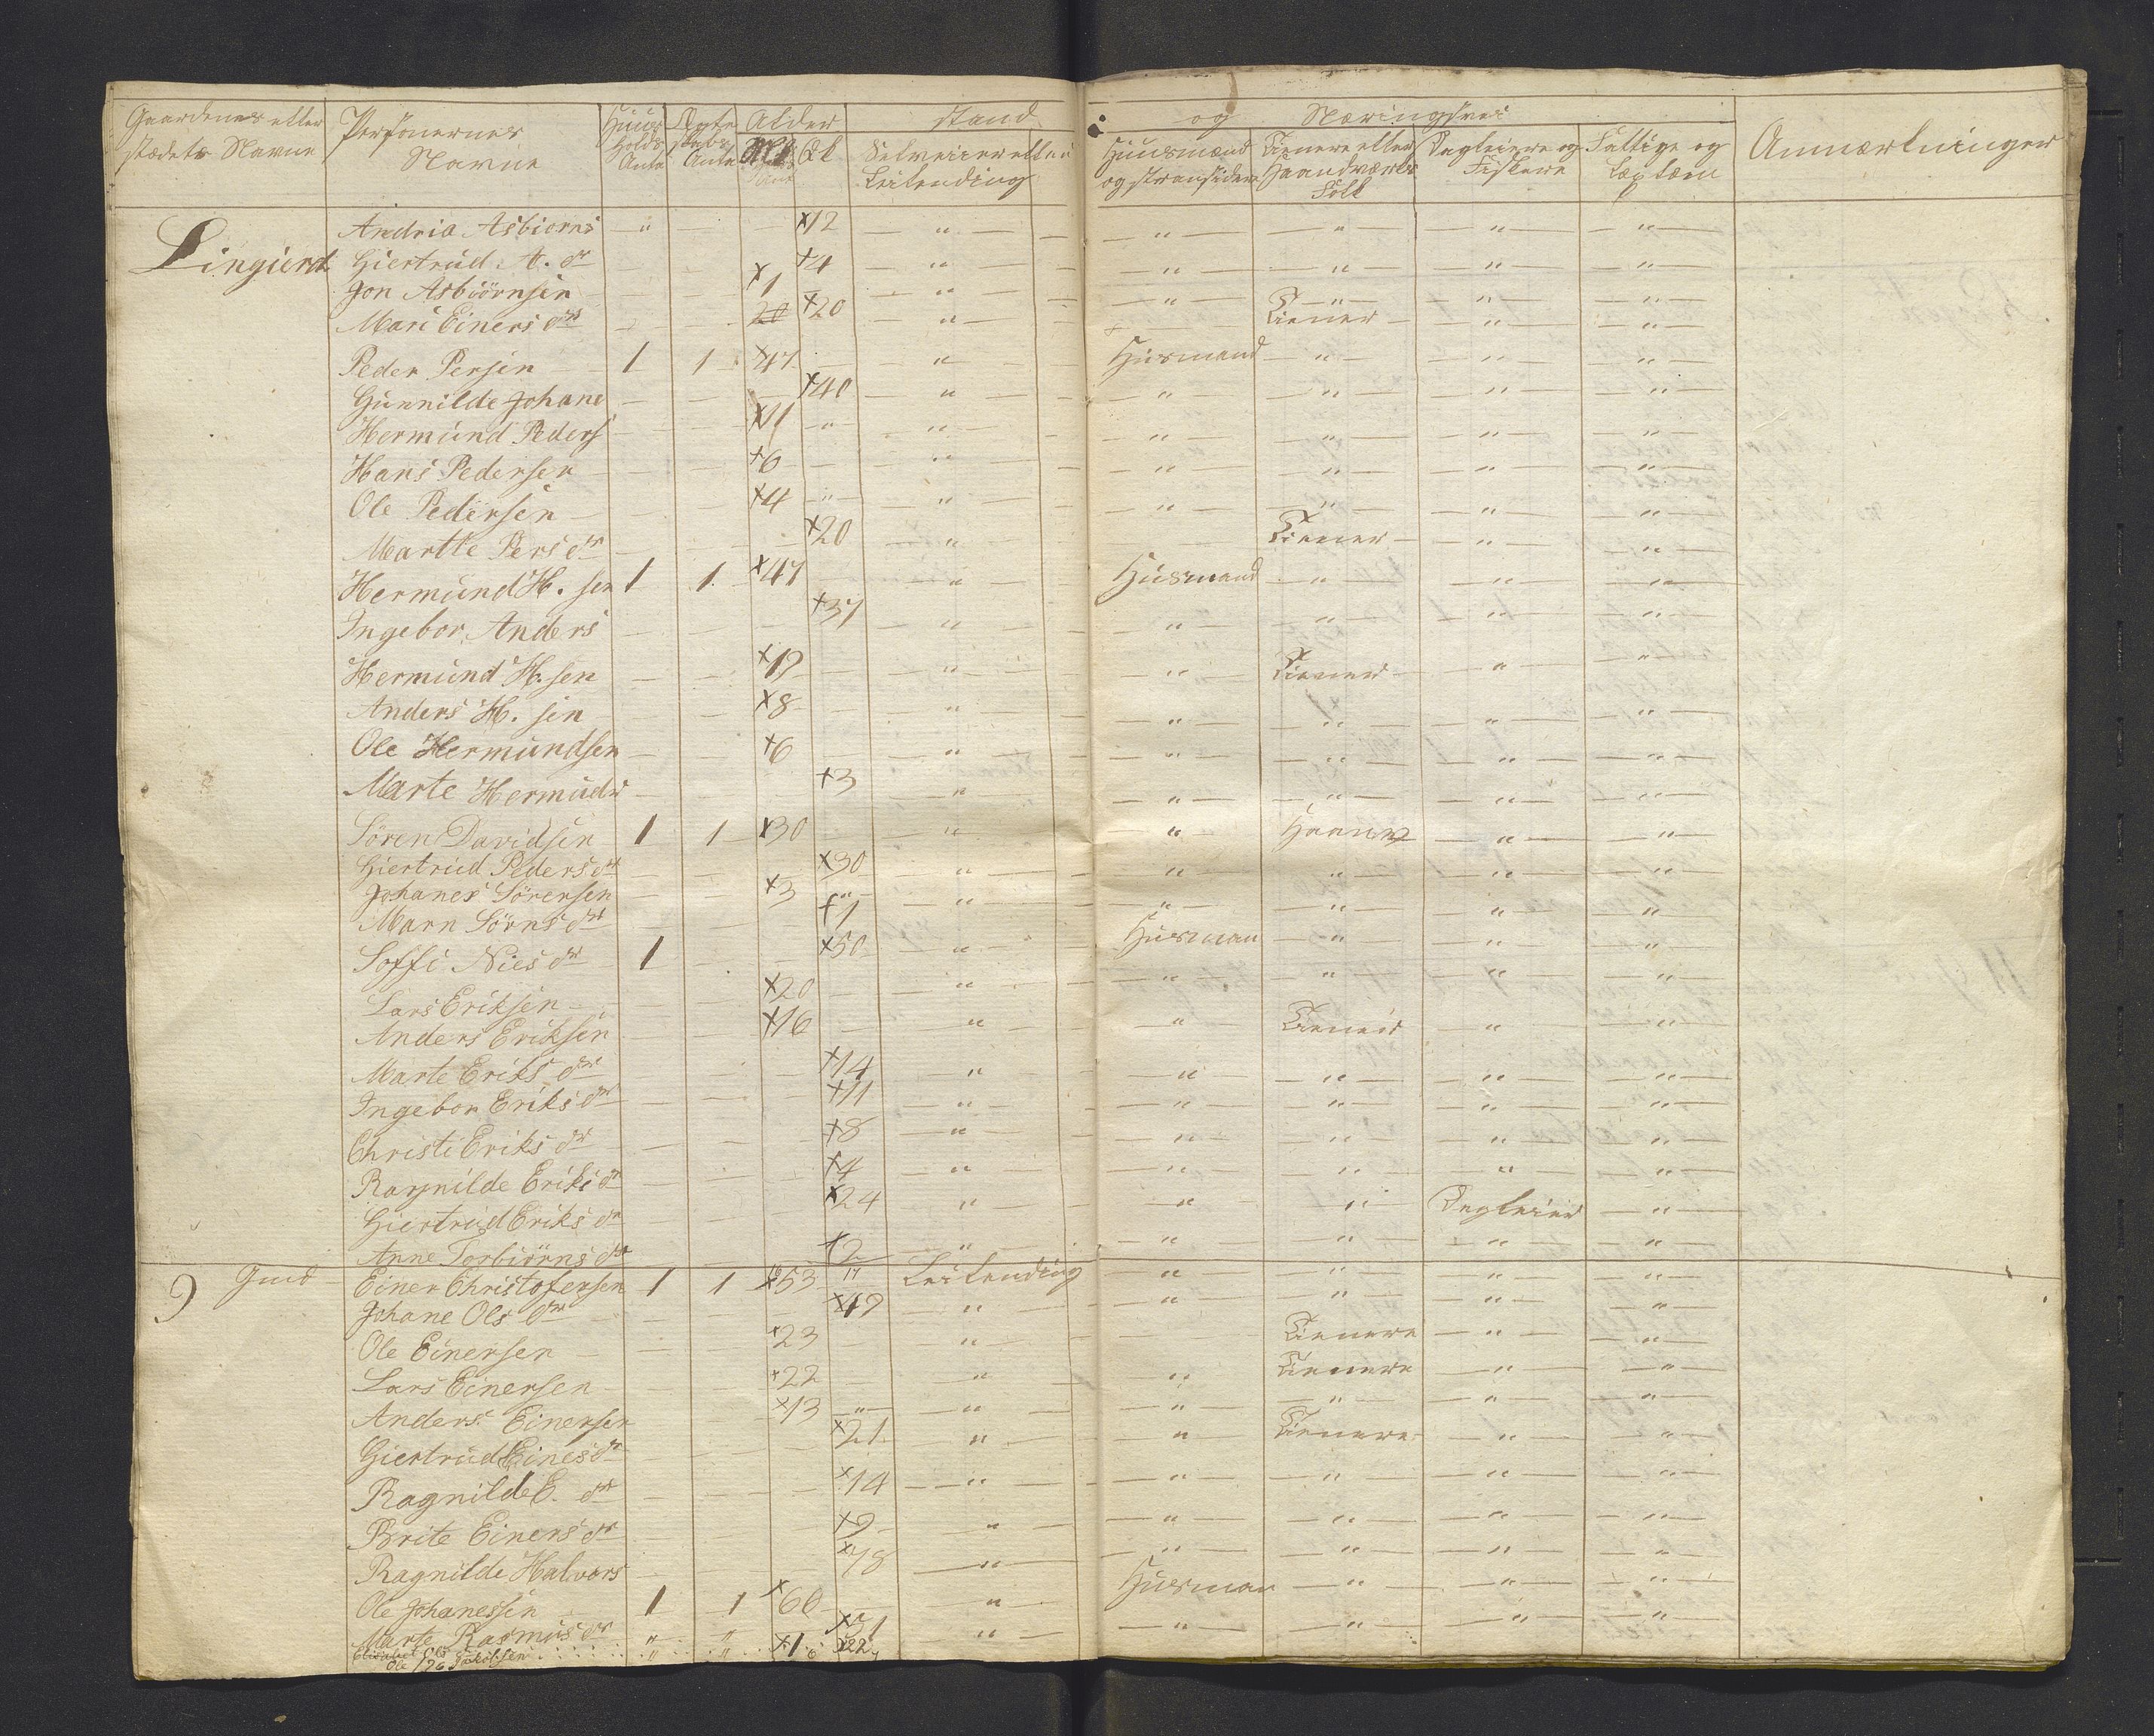 Gaardenes eller stædets Navne | Personernes Navne | Huus Holds Antal | Ægte skabs Antal | Alder Mk Qk | Stand og Næringsvei | Anmærkninger
Selveier eller Leilending | Huusmænd og stransidere | Tienere eller Haandværks Folk | Dagleiere og Fiskere | Fattige og
Andria Asbiorns " 12
Lingierd Giertrud A. dr 4
Jon Asbiörnsen 1
Mari Einers dr 20 20 Tiener
Peder Persen 1 1 47 Husmand
Gunnilde Johane 40
Hermund Peders 11
Hans Pedersen 6
Ole Pedersen 4
Martte Pers dr 20 Tiener
Hermund H. sen 1 1 47 Husmand
Ingebor Anders 37
Hermund H. sen 12 Tiener
Anders H. sen 8
Ole Hermundsen 6
Marte Hermuds 3
Sören Davidsen 1 1 30 Haanv
Giertrud Peders dr 30
Johanes Sörensen 3
Marn Sörns dr 1
Soffi Nies dr 1 50 Husman
Lars Eriksen 20
Anders Eriksen 16 Tiener
Marte Eriks dr 14
Ingebor Eriks dr 11
Christi Eriks dr 8
Ragnilde Eriks dr 4
Giertrud Eriks dr 24 Dagleier
Anne Torbiörns dr 2
9 Einer Christofersen 1 1 53 Leilending
Johane Ols dr 49
Ole Einersen 23 Tienere
Lars Einersen 22 Tienere
Anders Einersen 13
Giertrud Eines dr 21 Tienere
Ragnilde E. dr 14
Brite Einers dr 9
Ragnilde Halvors 78
Ole Johanessen 1 1 60 Husman
Marte Rasmus dr 51